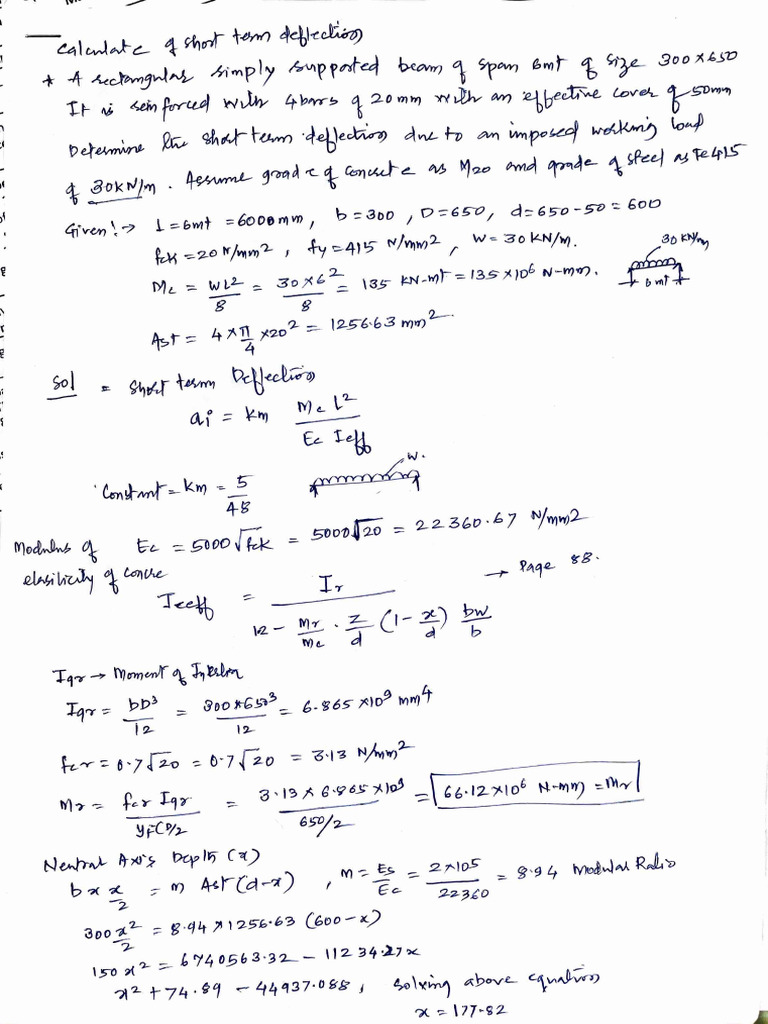 Calculate of short term deflection
* A rectangular simply supported beam of span 6mt of size 300×650
It is reinforced with 4bars of 20mm with an effective cover of 50mm
Determine the short term deflection due to an imposed working load
of 30KN/m. Assume grade of concrete as M20 and grade of steel as Fe415
Given:→ l=6mt =6000mm, b=300, D=650, d=650-50=600
fck=20 N/mm², fy=415 N/mm², W=30KN/m.
30 KN/m
Mc = WL²/8 = 30×6²/8 = 135 KN-mt = 135×10⁶ N-mm.
6mt
Ast = 4×π/4 ×20² = 1256.63 mm²
Sol = Short term Deflection
ai = Km Mc l²/Ec Ieff
Constant = Km = 5/48
W.
Modulus of Ec = 5000√fck = 5000√20 = 22360.67 N/mm2
elasilicity of concre
Iceff = Ir/12 - Mr/Mc . Z/d (1-x/d) bw/b → Page 88.
Igr → Moment of Inertia
Igr = bD³/12 = 300×650³/12 = 6.865×10⁹ mm⁴
fcr = 0.7√20 = 0.7√20 = 3.13 N/mm²
Mr = fcr Igr/yF(D/2 = 3.13×6.865×10⁹/650/2 = 66.12×10⁶ N-mm = Mr
Neutral Axis Depth (x)
b× x/2 = m Ast (d-x), m = Es/Ec = 2×105/22360 = 8.94 Modular Ratio
300x²/2 = 8.94×1256.63 (600-x)
150x² = 6740563.32 - 11234.27x
x² + 74.89 - 44937.088, solving above equation
x = 177.82